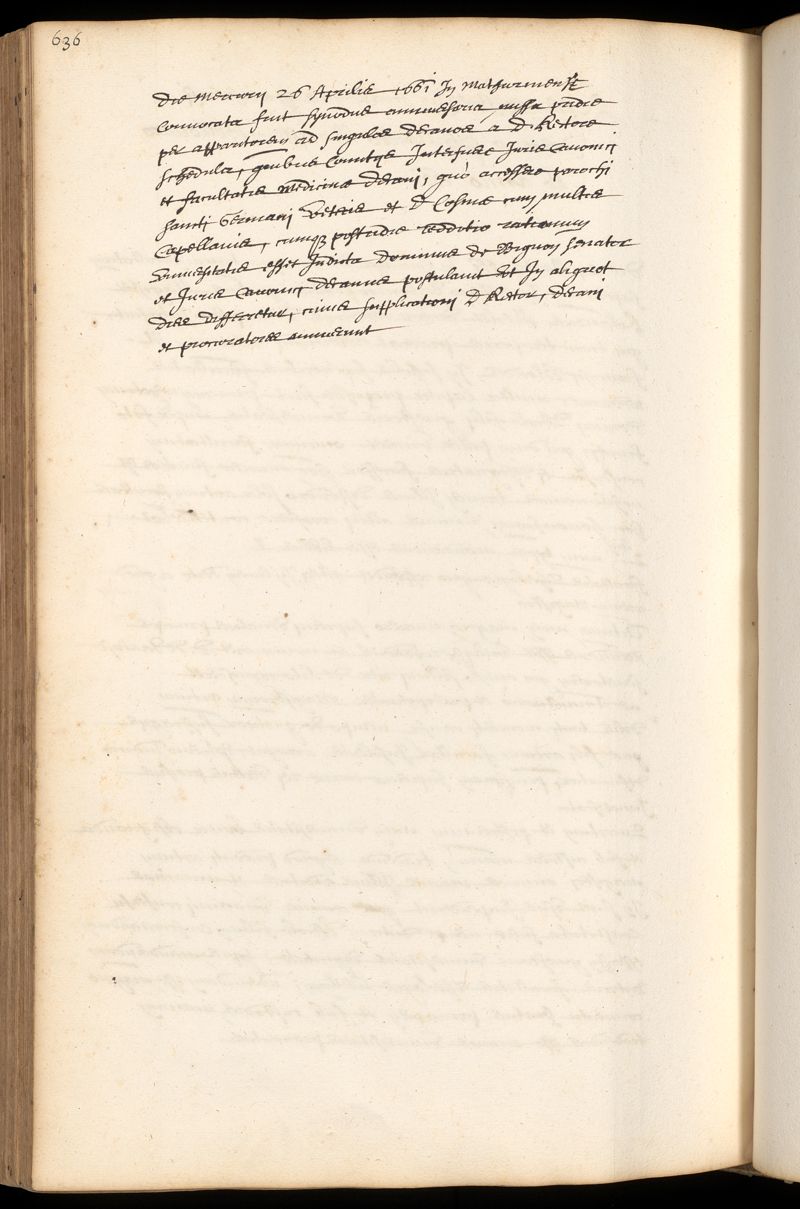 636
Die Mercurij 26 Aprilis 1661 In Mathurinensi
convocata fuit synodus anniversaria, missa pridie
per apparitorem ad singulos decanos a D. Rectore
schedula, quibus Comitijs Interfuere Juris Canonici
et facultatis medicinæ decani, quò accessere parochi
sancti Germani Veteris et D Cosmæ cum multis
Capellanis, cumque postridie redditio rationum
Universitatis esset Indicta dominus de Bignon senator
et Juris Canonici decanus postulavit ut In aliquot
dies differretur, cuius supplicationi D Rector, decani
et procuratores annuerunt